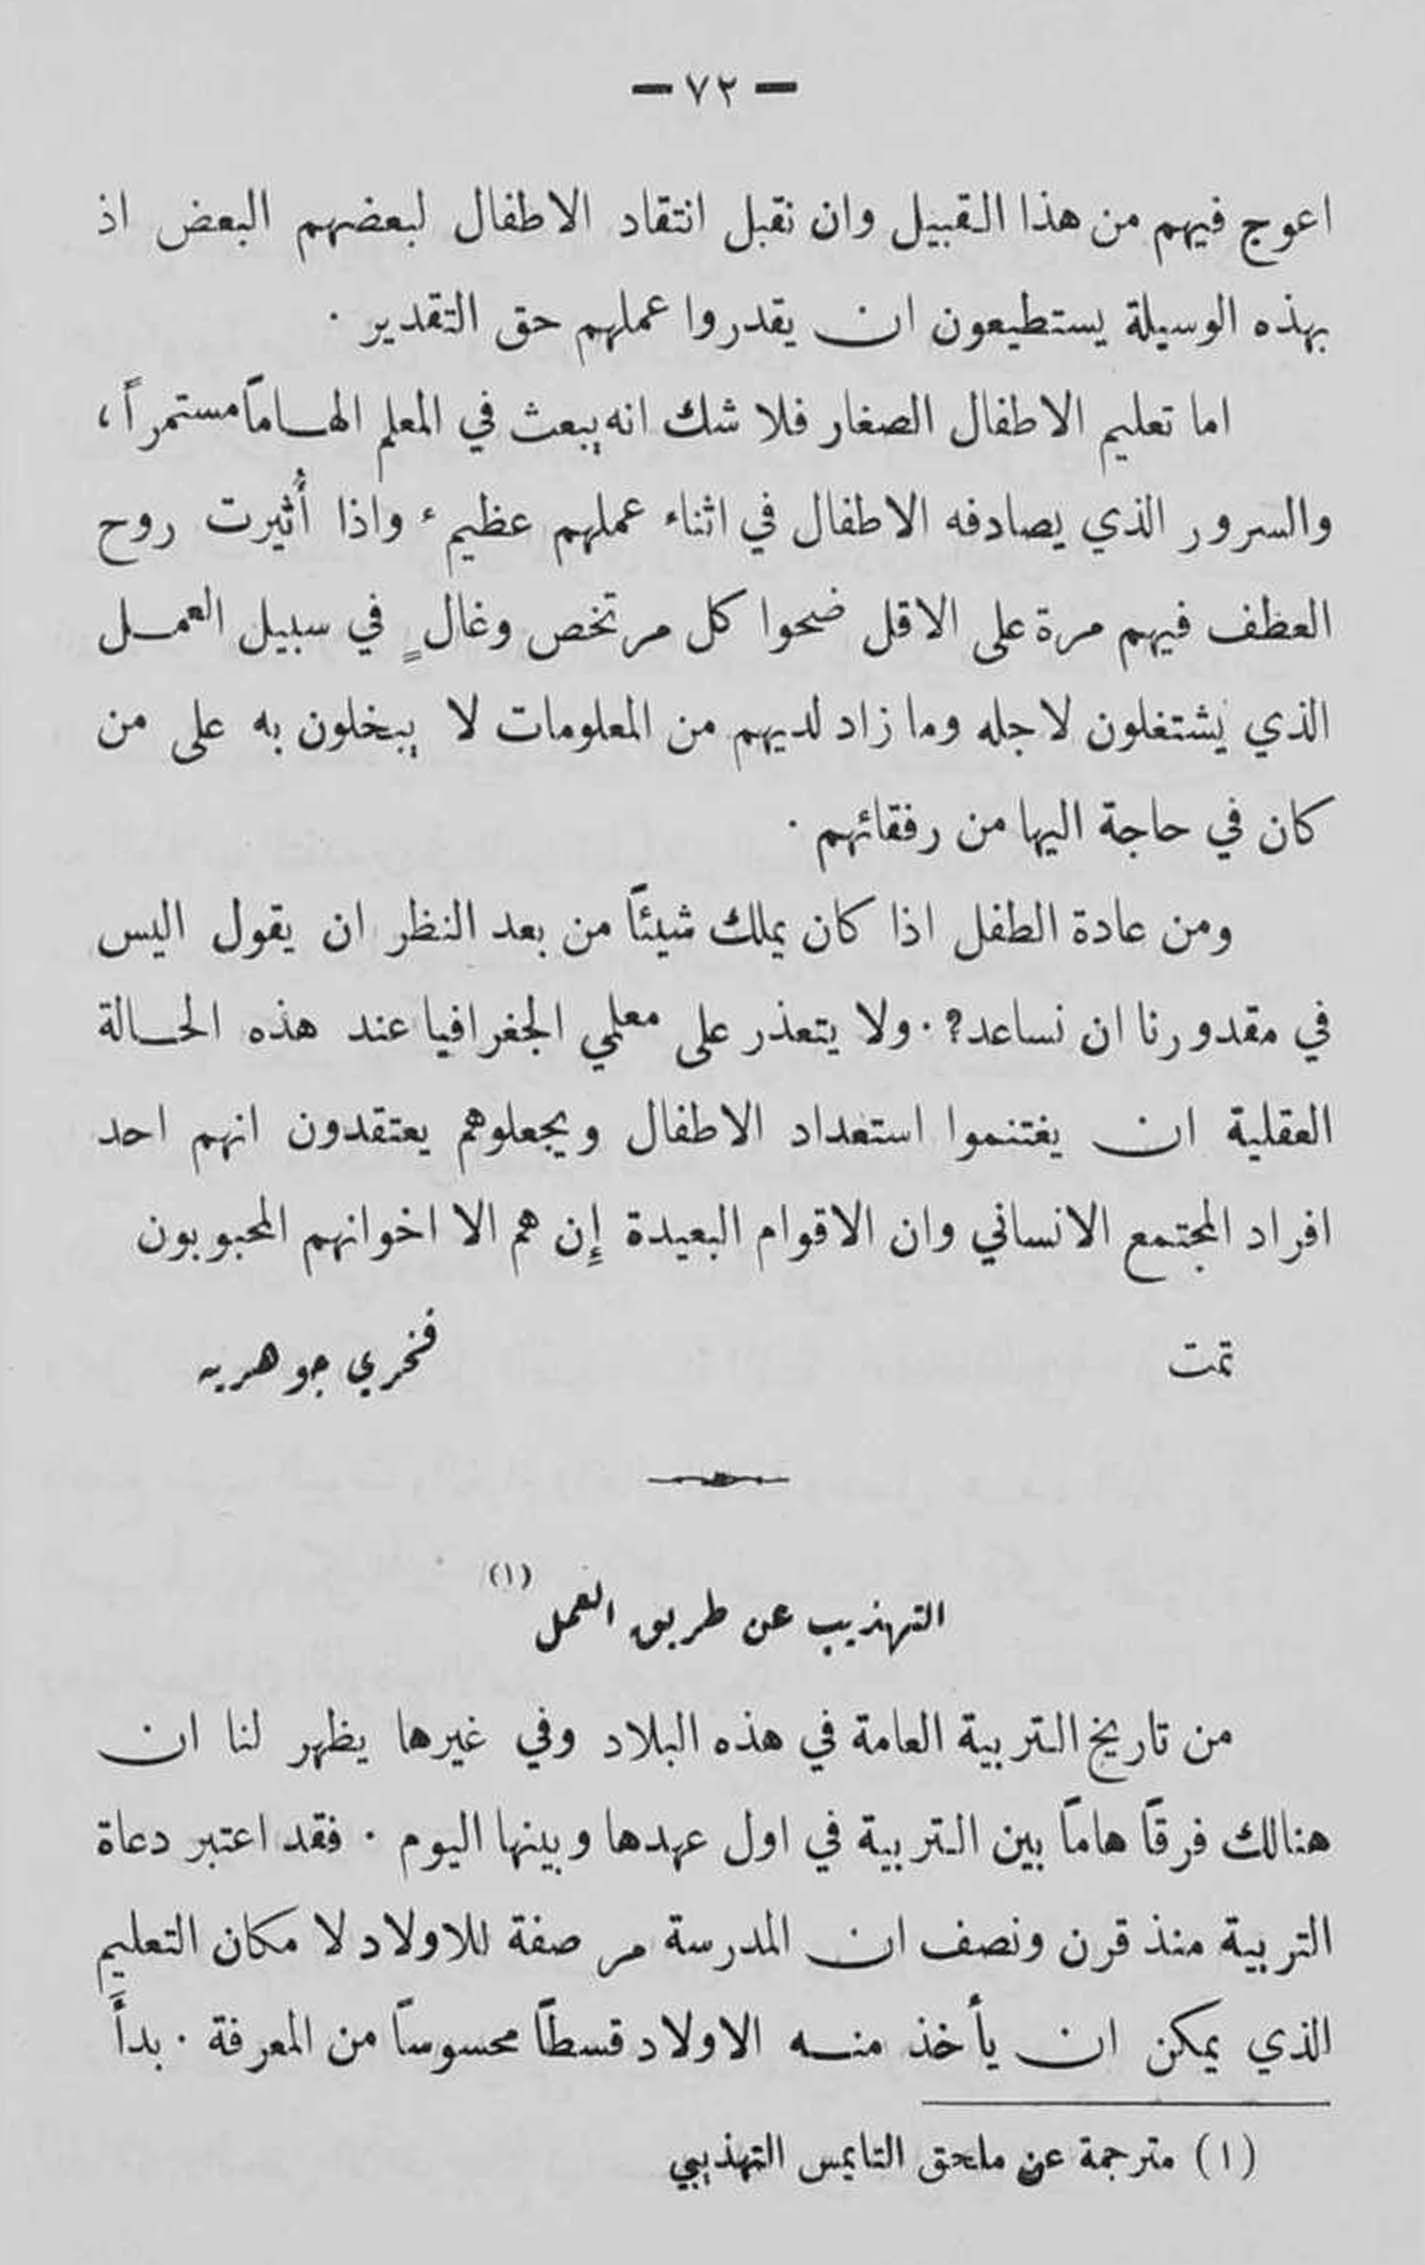 — ٧٢ —
اعوج فيهم من هذا القبيل وان نقبل انتقاد الاطفال لبعضهم البعض اذ
بهذه الوسيلة يستطيعون ان يقدروا عملهم حق التقدير .
اما تعليم الاطفال الصغار فلا شك انه يبعث في المعلم الهاماً مستمراً ،
والسرور الذي يصادفه الاطفال في اثناء عملهم عظيم ، واذا أُثيرت روح
العطف فيهم مرة على الاقل ضحوا كل مرتخص وغالٍ في سبيل العمل
الذي يشتغلون لاجله وما زاد لديهم من المعلومات لا يبخلون به على من
كان في حاجة اليها من رفقائهم .
ومن عادة الطفل اذا كان يملك شيئاً من بعد النظر ان يقول اليس
في مقدورنا ان نساعد؟ . ولا يتعذر على معلمي الجغرافيا عند هذه الحالة
العقلية ان يغتنموا استعداد الاطفال ويجعلوهم يعتقدون انهم احد
افراد المجتمع الانساني وان الاقوام البعيدة إن هم الا اخوانهم المحبوبون
تمت فخري جوهريه
التهذيب عن طريق العمل (١)
من تاريخ التربية العامة في هذه البلاد وفي غيرها يظهر لنا ان
هنالك فرقاً هاماً بين التربية في اول عهدها وبينها اليوم . فقد اعتبر دعاة
التربية منذ قرن ونصف ان المدرسة مرصفة للاولاد لا مكان التعليم
الذي يمكن ان يأخذ منه الاولاد قسطاً محسوساً من المعرفة . بدأَ
(١) مترجمة عن ملحق التايمس التهذيبي